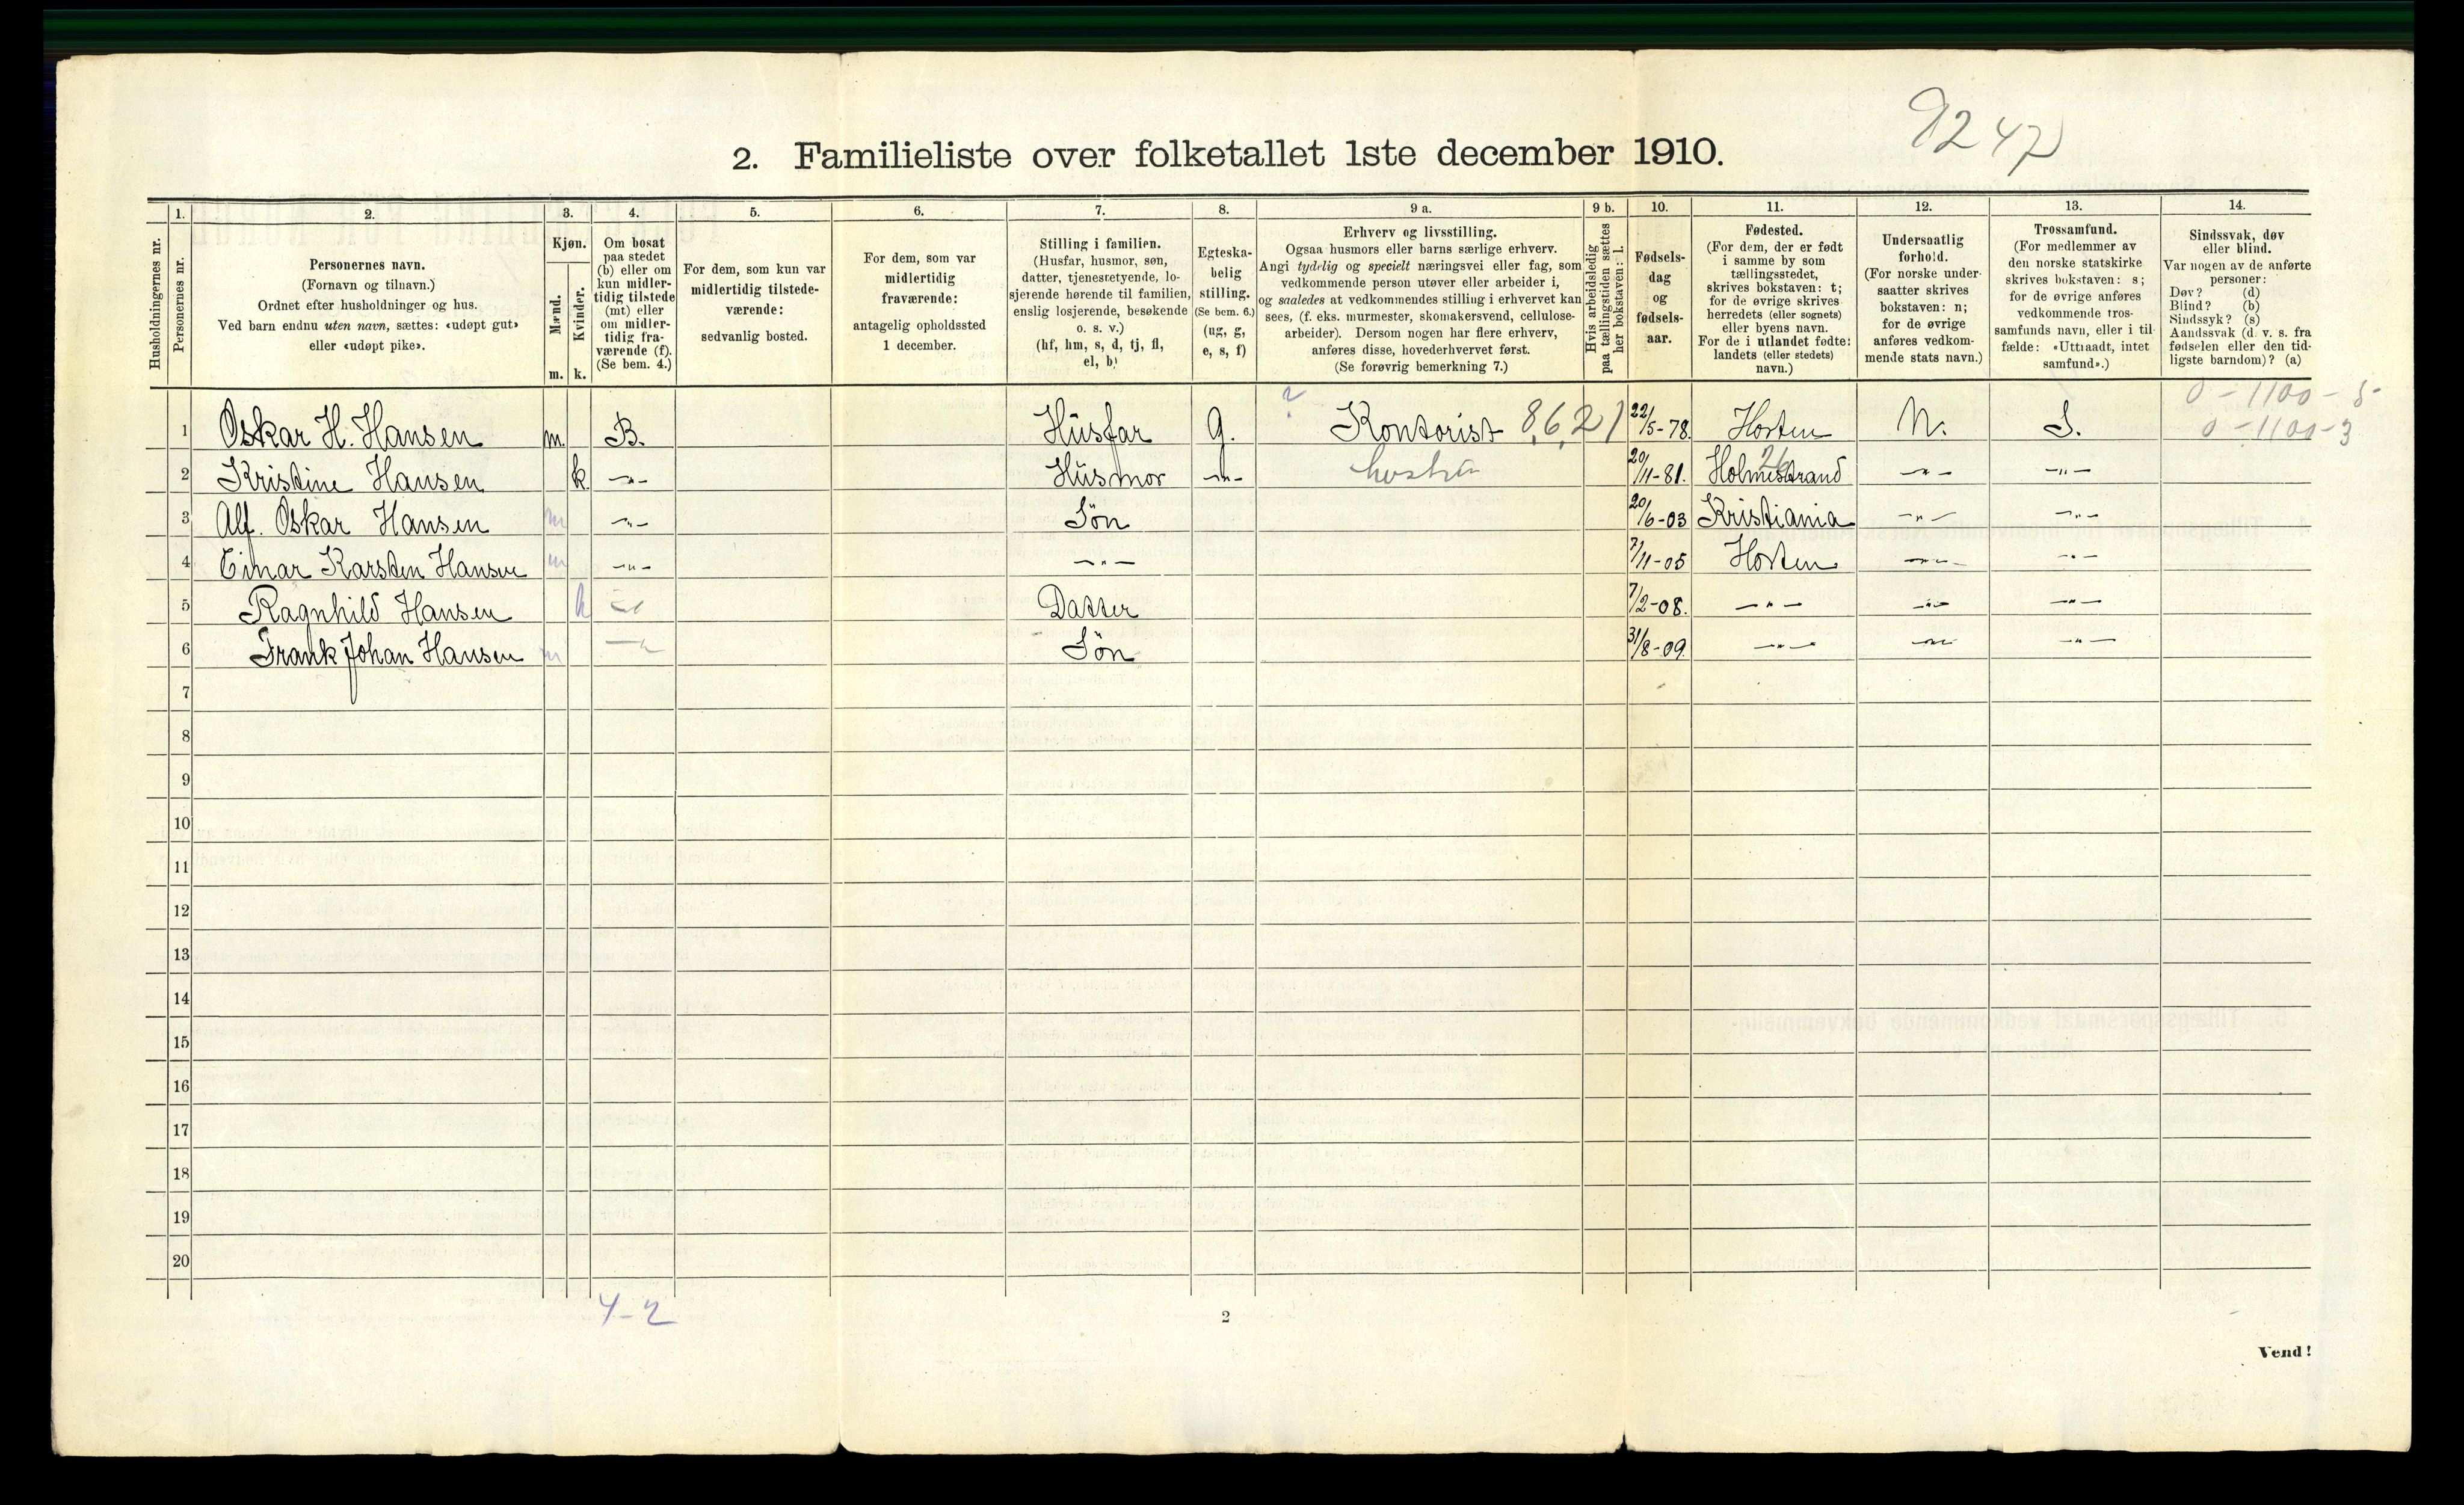 9247
2. Familieliste over folketallet 1ste december 1910.
Husholdningernes nr.
1.
Personernes nr.
2.
Personernes navn.
(Fornavn og tilnavn.)
Ordnet efter husholdninger og hus.
Ved barn endnu uten navn, sættes: «udøpt gut»
eller «udøpt pike».
3.
Kjøn.
Mænd.
Kvinder.
m. k.
4.
Om bosat
paa stedet
(b) eller om
kun midler-
tidig tilstede
(mt) eller
om midler-
tidig fra-
værende (f).
(Se bem. 4.)
5.
For dem, som kun var
midlertidig tilstede-
værende:
sedvanlig bosted.
6.
For dem, som var
midlertidig
fraværende:
antagelig opholdssted
1 december.
7.
Stilling i familien.
(Husfar, husmor, søn,
datter, tjenestetyende, lo-
sjerende hørende til familien,
enslig losjerende, besøkende
o. s. v.)
(hf, hm, s, d, tj, fl,
el, b)
8.
Egteska-
belig
stilling.
(Se bem. 6.)
(ug, g,
e, s, f)
9 a.
Erhverv og livsstilling.
Ogsaa husmors eller barns særlige erhverv.
Angi tydelig og specielt næringsvei eller fag, som
vedkommende person utøver eller arbeider i,
og saaledes at vedkommendes stilling i erhvervet kan
sees, (f. eks. murmester, skomakersvend, cellulose-
arbeider). Dersom nogen har flere erhverv,
anføres disse, hovederhvervet først.
(Se forøvrig bemerkning 7.)
9 b.
Hvis arbeidsledig
paa tællingstiden sættes
her bokstaven: l.
10.
Fødsels-
dag
og
fødsels-
aar.
11.
Fødested.
(For dem, der er født
i samme by som
tællingsstedet,
skrives bokstaven: t;
for de øvrige skrives
herredets (eller sognets)
eller byens navn.
For de i utlandet fødte:
landets (eller stedets)
navn.)
12.
Undersaatlig
forhold.
(For norske under-
saatter skrives
bokstaven: n;
for de øvrige
anføres vedkom-
mende stats navn.)
13.
Trossamfund.
(For medlemmer av
den norske statskirke
skrives bokstaven: s;
for de øvrige anføres
vedkommende tros-
samfunds navn, eller i til-
fælde: «Uttraadt, intet
samfund».)
14.
Sindssvak, døv
eller blind.
Var nogen av de anførte
personer:
Døv? (d)
Blind? (b)
Sindssyk? (s)
Aandssvak (d. v. s. fra
fødselen eller den tid-
ligste barndom)? (a)
0 - 1100 - 5
1 Oskar H. Hansen m. B. Husfar G. ? Kontorist 8,6,21 22/5-78. Horten N. S. 0 - 1100 - 3
2 Kristine Hansen k. -"- Husmor -"- hustru 20/11-81. Holmestrand 26 -"- -"-
3 Alf. Oskar Hansen m -"- Søn 20/6-03 Kristiania -"- -"-
4 Einar Karsten Hansen m -"- -"- 7/11-05 Horten. -"- -"-
5 Ragnhild Hansen k -"- Datter 7/2-08. -"- -"- -"-
6 Frank Johan Hansen m -"- Søn 31/8-09. -"- -"- -"-
7
8
9
10
11
12
13
14
15
16
17
18
19
20
4-2
2
Vend!